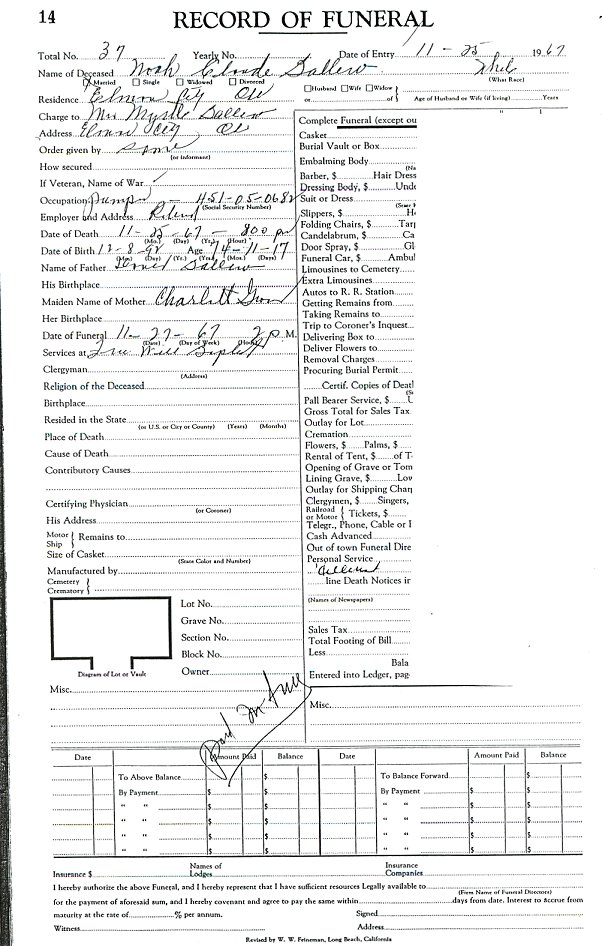 14 RECORD OF FUNERAL
Total No. 37 Yearly No. Date of Entry 11 - 25 1967
Name of Deceased Noah Claude Sallew
Married Single Widowed Divorced (What Race)
Residence Elmore City Husband Wife Widow
or of Age of Husband or Wife (if living) Years
Charge to Mrs Myrtle Sallew
Address Elmore City
Order given by same
(or informant)
How secured
If Veteran, Name of War
Occupation Pumper - 451-05-0682
(Social Security Number)
Employer and Address Retired
Date of Death 11 - 25 - 67 - 800 pm
(Mo.) (Day) (Yr.) (Hour)
Date of Birth 12-8-92 Age 74-11-17
(Mo.) (Day) (Yr.) (Years) (Months) (Days)
Name of Father Sallew
His Birthplace
Maiden Name of Mother Charlott
Her Birthplace
Date of Funeral 11 - 27 - 67 2 P.M.
(Date) (Day of Week) (Hour)
Services at Free Will Baptist
Clergyman
(Address)
Religion of the Deceased
Birthplace
Resided in the State
(or U.S. or City or County) (Years) (Months)
Place of Death
Cause of Death
Contributory Causes
Certifying Physician
(or Coroner)
His Address
Motor Ship } Remains to
Size of Casket
(State Color and Number)
Manufactured by
Cemetery
Crematory
Lot No.
Grave No.
Section No.
Block No.
Owner
Diagram of Lot or Vault
Misc.
Paid In full
Complete Funeral (except ou
Casket
Burial Vault or Box
Embalming Body
Barber, $ Hair Dress
Dressing Body, $ Unde
Suit or Dress
Slippers, $ H
Folding Chairs, $ Tar
Candelabrum, $ Ca
Door Spray, $ Gl
Funeral Car, $ Ambul
Limousines to Cemetery
Extra Limousines
Autos to R. R. Station
Getting Remains from
Taking Remains to
Trip to Coroner's Inquest
Delivering Box to
Deliver Flowers to
Removal Charges
Procuring Burial Permit
Certif. Copies of Deat
Pall Bearer Service, $
Gross Total for Sales Tax
Outlay for Lot
Cremation
Flowers, $ Palms, $
Rental of Tent, $ of T
Opening of Grave or Tom
Lining Grave, $ Low
Outlay for Shipping Char
Clergymen, $ Singers,
Railroad or Motor } Tickets, $
Telegr., Phone, Cable or
Cash Advanced
Out of town Funeral Dire
Personal Service
line Death Notices in
(Names of Newspapers)
Sales Tax
Total Footing of Bill
Less
Bala
Entered into Ledger, pag
Misc.
Date Amount Paid Balance Date Amount Paid Balance
To Above Balance $ $ To Balance Forward $ $
By Payment $ $ By Payment $ $
" " $ $ " " $ $
" " $ $ " " $ $
" " $ $ " " $ $
" " $ $ " " $ $
Insurance $ Names of Lodges Insurance Companies
I hereby authorize the above Funeral, and I hereby represent that I have sufficient resources Legally available to
(Firm Name of Funeral Directors)
for the payment of aforesaid sum, and I hereby covenant and agree to pay the same within days from date. Interest to accrue from
maturity at the rate of % per annum. Signed
Witness Address
Revised by W. W. Feineman, Long Beach, California